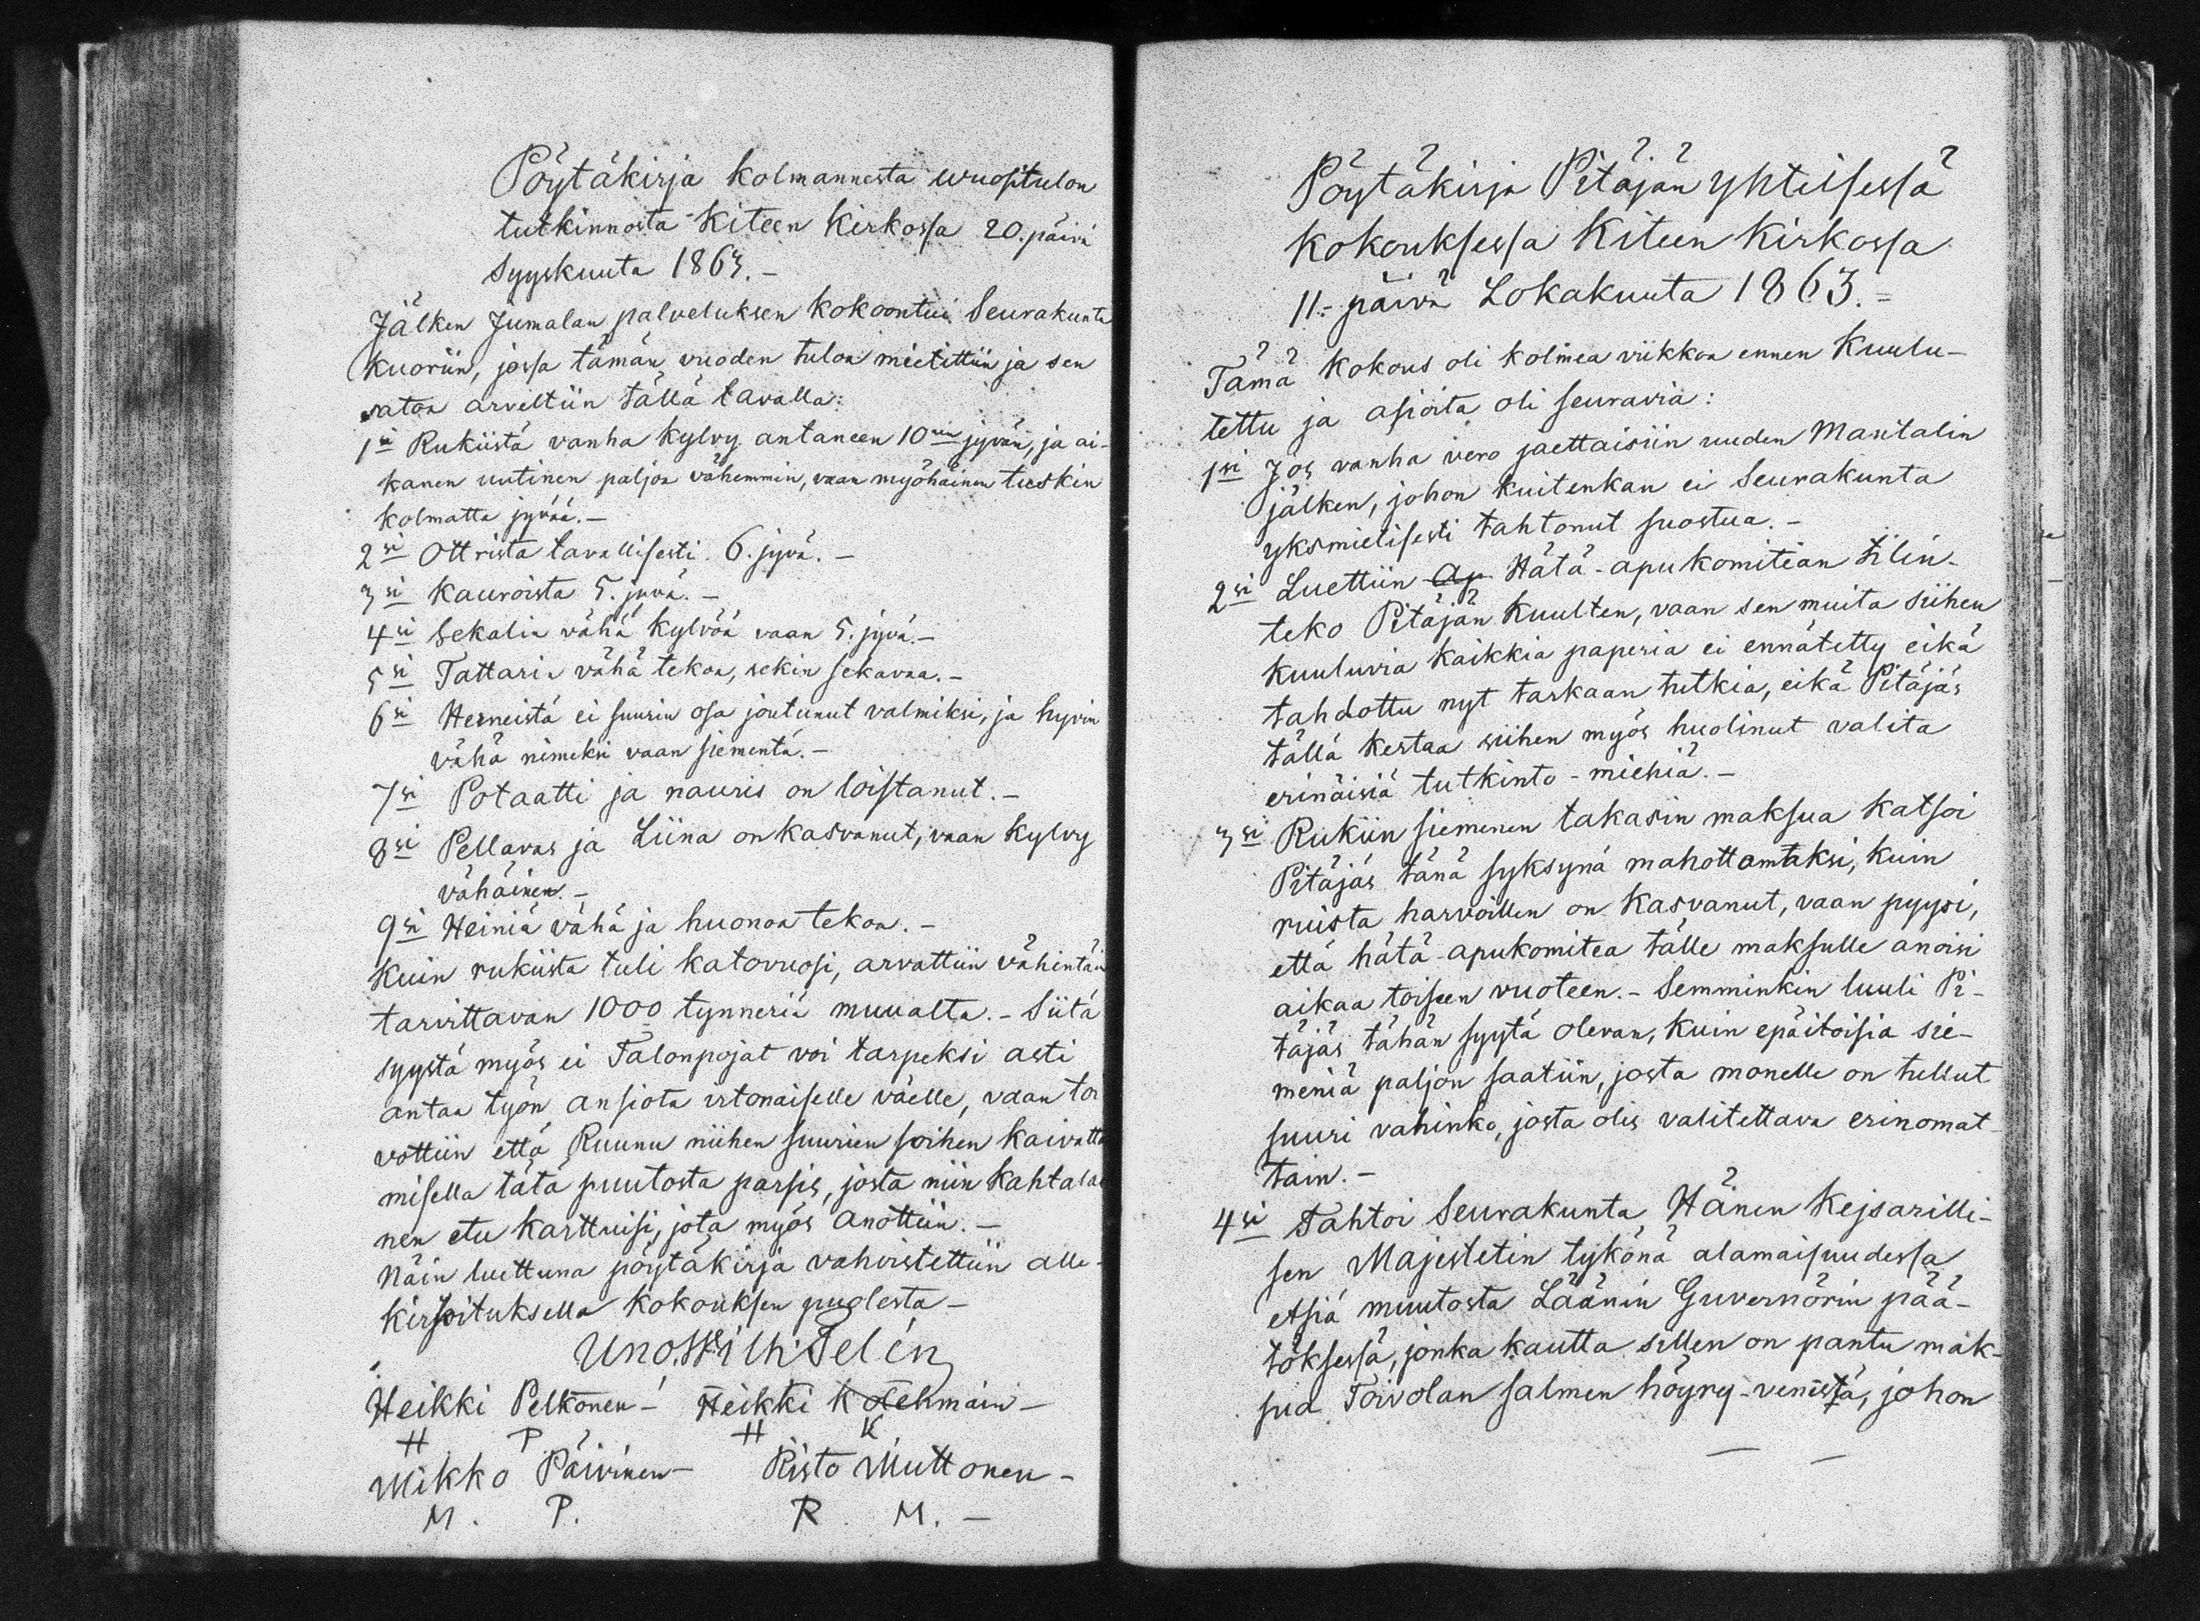 Pöytäkirja kolmannesta wuositulon
tutkinnosta Kiteen Kirkossa 20. päivä
Syyskuuta 1863.-
Jälken Jumalan palveluksen kokoontui Seurakunta
Kuoriin, jossa tämän vuoden tuloa mietittiin ja sen
satoa arveltiin tällä tavalla:
1si Rukiista vanha kylvy antaneen 10nen jyvän, ja ai-
kanen uutinen paljoa vähemmin, vaan myöhäinen tuskin
kolmatta jyvää.-
2si Ottrista tavallisesti 6. jyvä.-
3si Kauroista 5. jyvä.-
4si Sekalia vähä kylvöä vaan 5. jyvä.-
5si Tattaria vähä tekoa, sekin sekavaa.-
6si Herneistä ei suurin osa joutunut valmiksi, ja hyvin
vähä nimeksi vaan siementä.-
7si Potaatti ja nauris on loistanut.-
8si Pellavas ja Liina on kasvanut, vaan kylvy
vähäinen.-
9si Heiniä vähä ja huonoa tekoa.-
Kuin rukiista tuli katovuosi, arvattiin vähintän
tarvittavan 1000 tynneriä muualta.- Siitä
syystä myös ei Talonpojat voi tarpeksi asti
antaa työn ansiota irtonaiselle väelle, vaan toi
vottiin että Ruunu niihen suurien soihen kaivatta
misella tätä puutosta parsis, josta niin kahtalai
nen etu karttuisi, jota myös anottiin.-
Näin luettuna pöytäkirja vahvistettiin alle-
kirjoituksella kokouksen puolesta-
Uno. Wilh: Telén
Heikki Pelkonen- Heikki Kotehmain-
H P. H K
Mikko Päivinen- Risto Muttonen-
M. P. R. M.-
Pöytäkirja Pitäjän yhteisessä
kokouksessa Kiteen Kirkossa
11:- päivä Lokakuuta 1863.=
Tämä kokous oli kolmea viikkoa ennen kuulu-
tettu ja asioita oli seuravia:
1si Jos vanha vero jaettaisiin uuden Mantalin
jälken, johon kuitenkan ei Seurakunta
yksmielisesti tahtonut suostua.-
2si Luettiin Ap Hätä-apukomitean tilin-
teko Pitäjän kuulten, vaan sen muita siihen
kuuluvia kaikkia paperia ei ennätetty eikä
tahdottu nyt tarkaan tutkia, eikä Pitäjäs
tällä kertaa siihen myös huolinut valita
erinäisiä tutkinto-miehiä.-
3si Rukiin siemenen takasin maksua katsoi
Pitäjäs tänä syksynä mahottomaksi, kuin
ruista harvoillen on kasvanut, vaan pyysi,
että hätä-apukomitea tälle maksulle anoisi
aikaa toiseen vuoteen.- Semminkin luuli Pi-
täjäs tähän syytä olevan, kuin epäitoisia sie-
meniä paljon saatiin, josta monelle on tullut
suuri vahinko, josta olis valitettava erinomat
tain.-
4si Tahtoi Seurakunta Hänen Kejsarilli-
sen Majestetin tykönä alamaisuudessa
etsiä muutosta Läänin Guvernörin pää-
töksessä, jonka kautta sillen on pantu mak-
sua Toivolan salmen höyry-venestä, johon